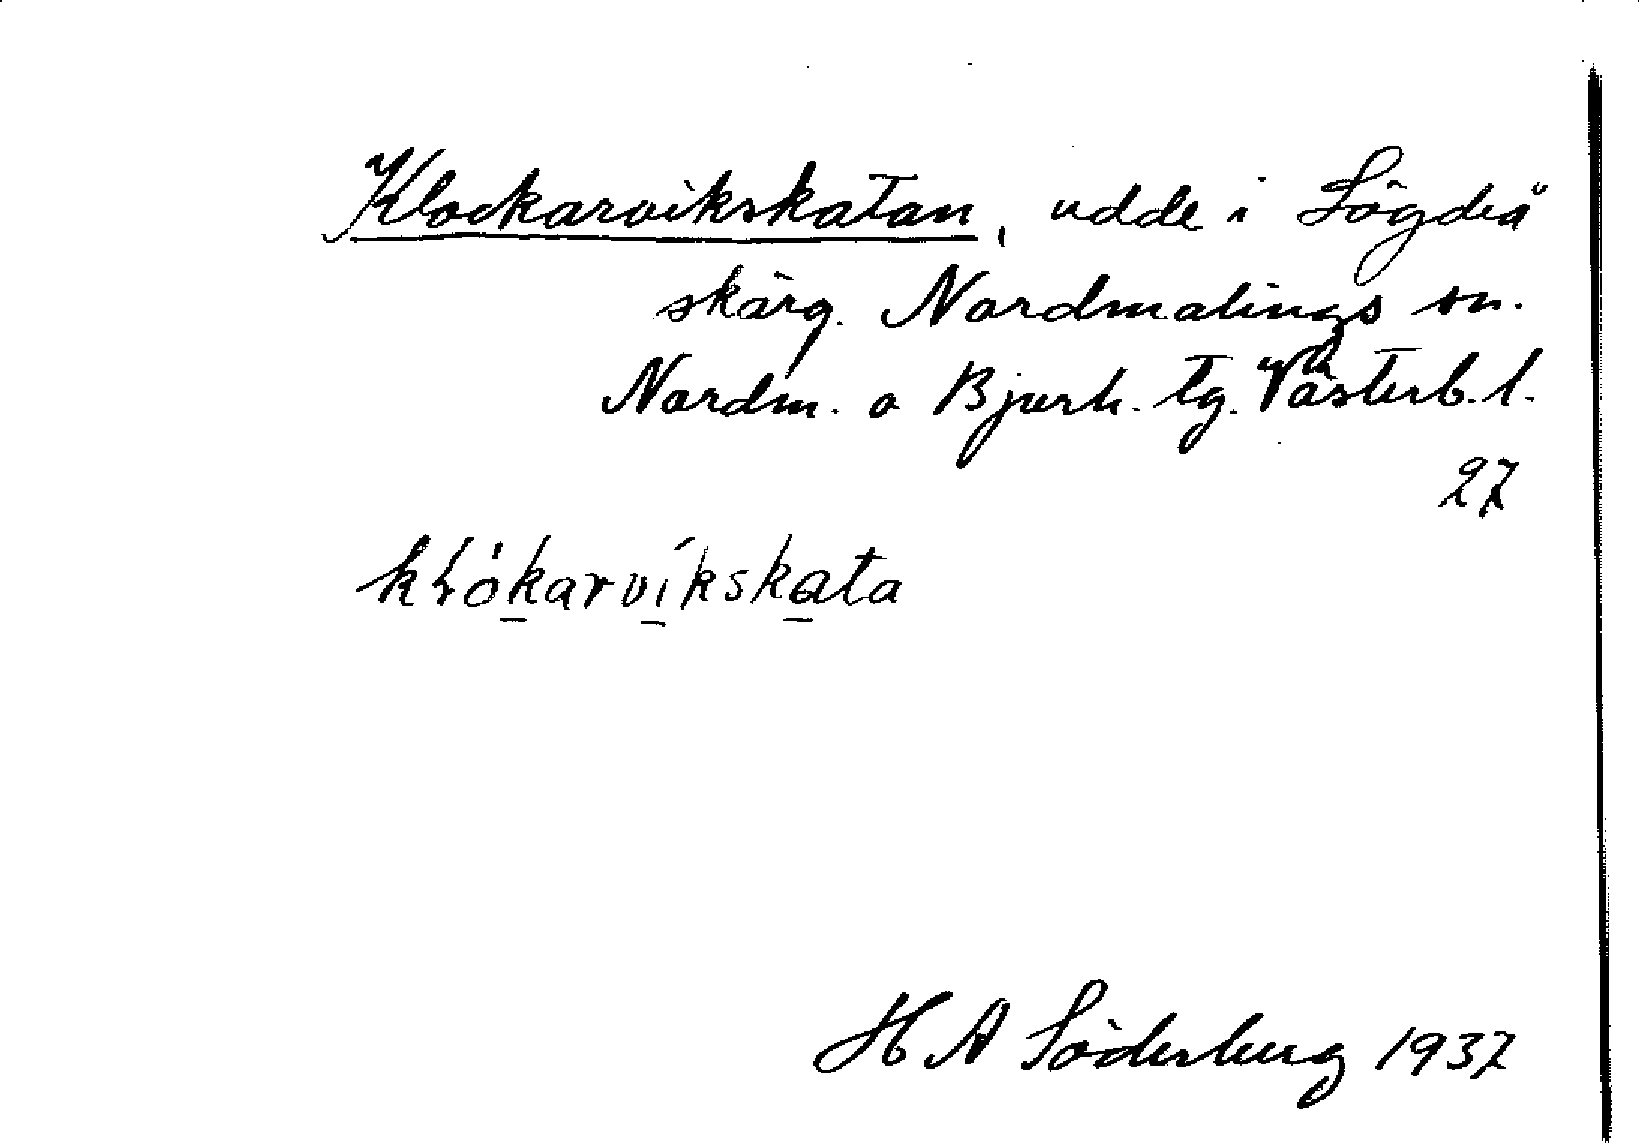 Klockarvikskatan, udde i Lögdeå
skärg. Nordmalings sn.
Nordm. o Bjurh. tg. Västerb. l.
27
kłókarvíkskata
H A Söderberg 1937